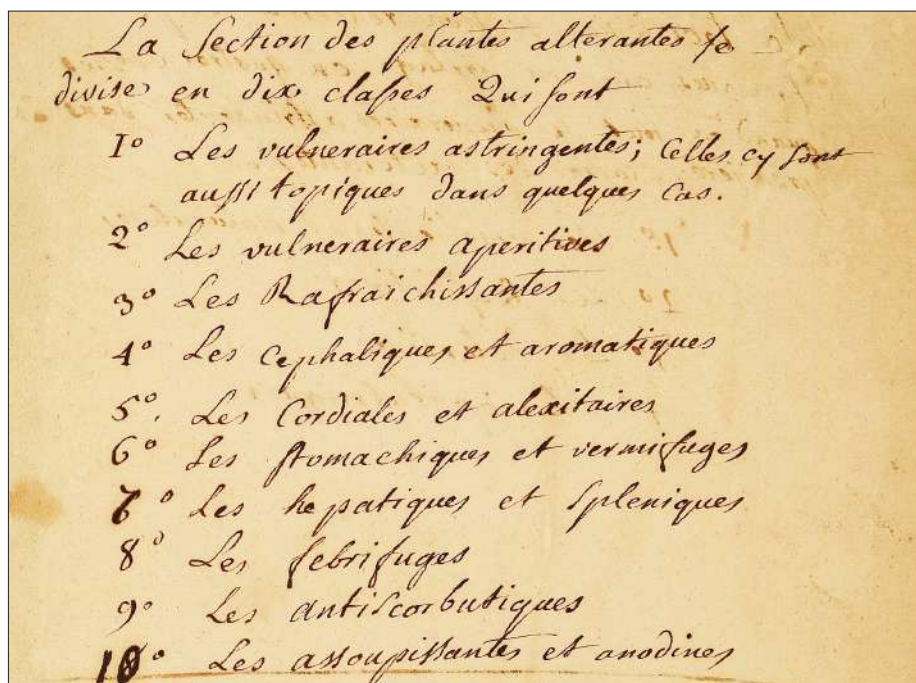 La Section des plantes alterantes se
divise en dix classes Qui sont
1° Les vulneraires astringentes; Celles cy sont
aussi topiques dans quelques Cas.
2° Les vulneraires aperitives
3° Les Rafraichissantes
4° Les Cephaliques et aromatiques
5°. Les Cordiales et alexitaires
6° Les stomachiques et vermifuges
7° Les hepatiques et Spleniques
8° Les febrifuges
9° Les antiscorbutiques
10° Les assoupissantes et anodines